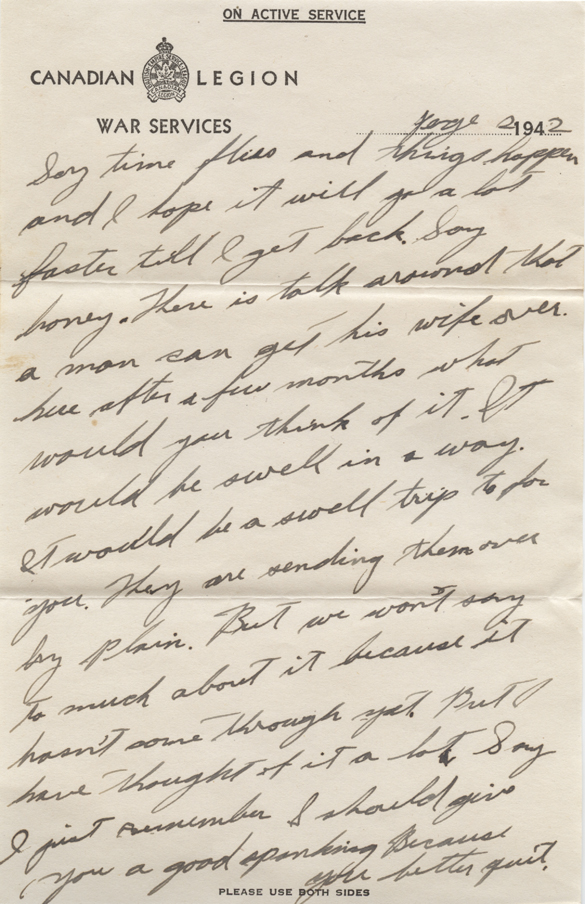 ON ACTIVE SERVICE
CANADIAN LEGION
WAR SERVICES
Page 2 1942
Say time flies and things happen
and I hope it will go a lot
faster till I get back. Say
honey. There is talk around that
a man can get his wife over.
here after a few months what
would you think of it. It
would be swell in a way.
It would be a swell trip to for
you. They are sending them over
by plain. But we won't say
to much about it because it
hasn't come through yet. But I
have thought of it a lot. Say
I just remember I should give
you a good spanking Because
you better quit.
PLEASE USE BOTH SIDES